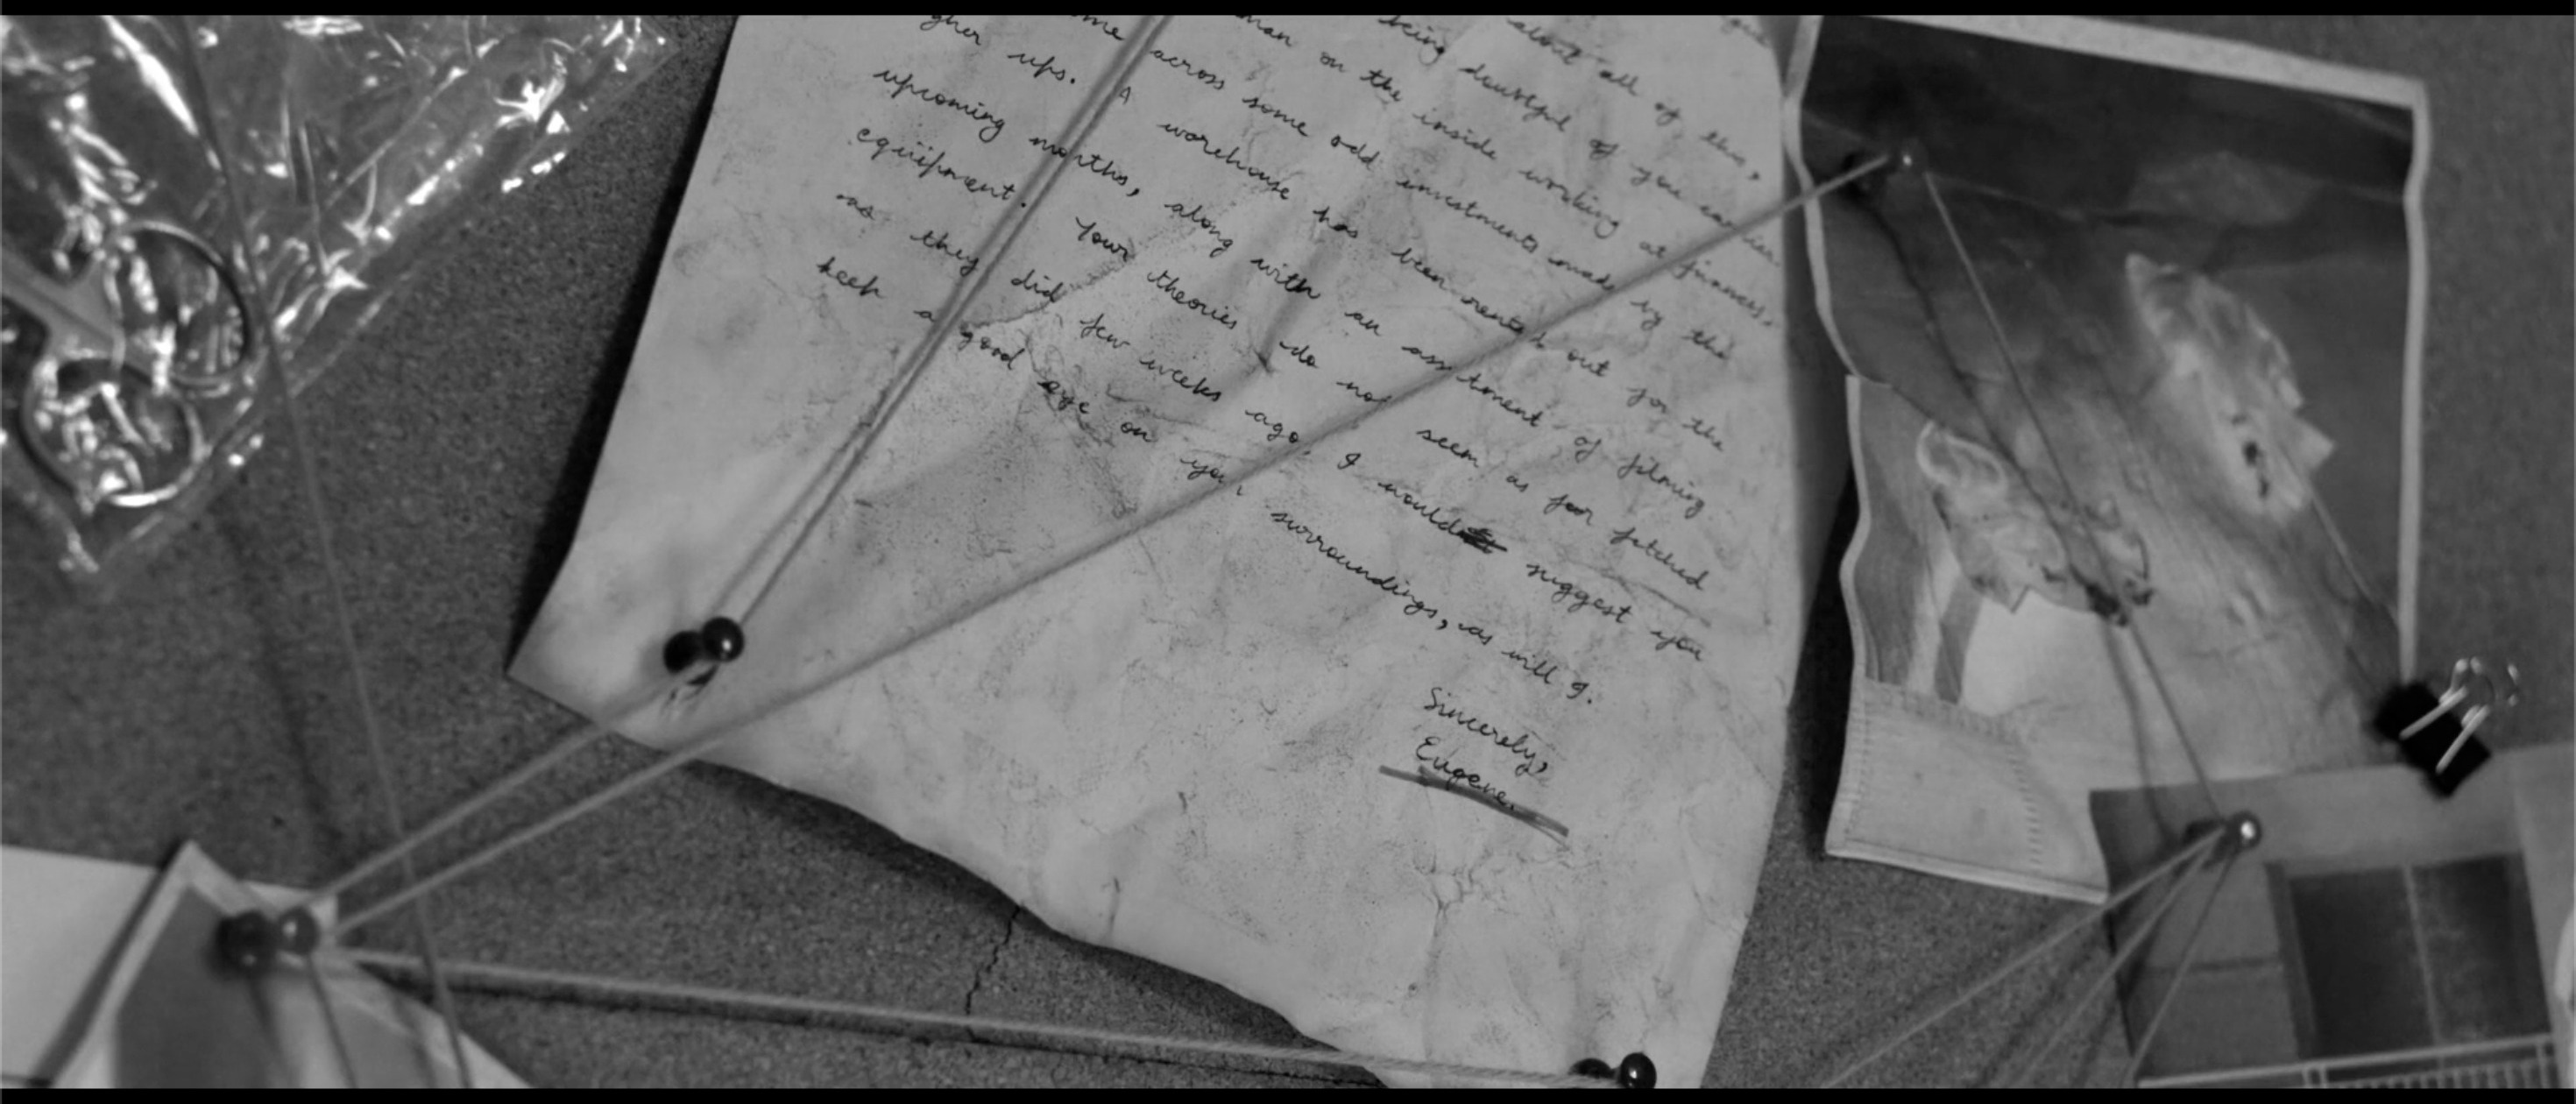 about all of this,
being doubtful of you earlier.
man on the inside working at finances,
ome across some odd investments made by the
gher ups. A warehouse has been rented out for the
upcoming months, along with an assortment of filming
equipment. Your theories do not seem as far fetched
as they did few weeks ago. I would suggest you
keep a good eye on your surroundings, as will I.
Sincerely,
Eugene.